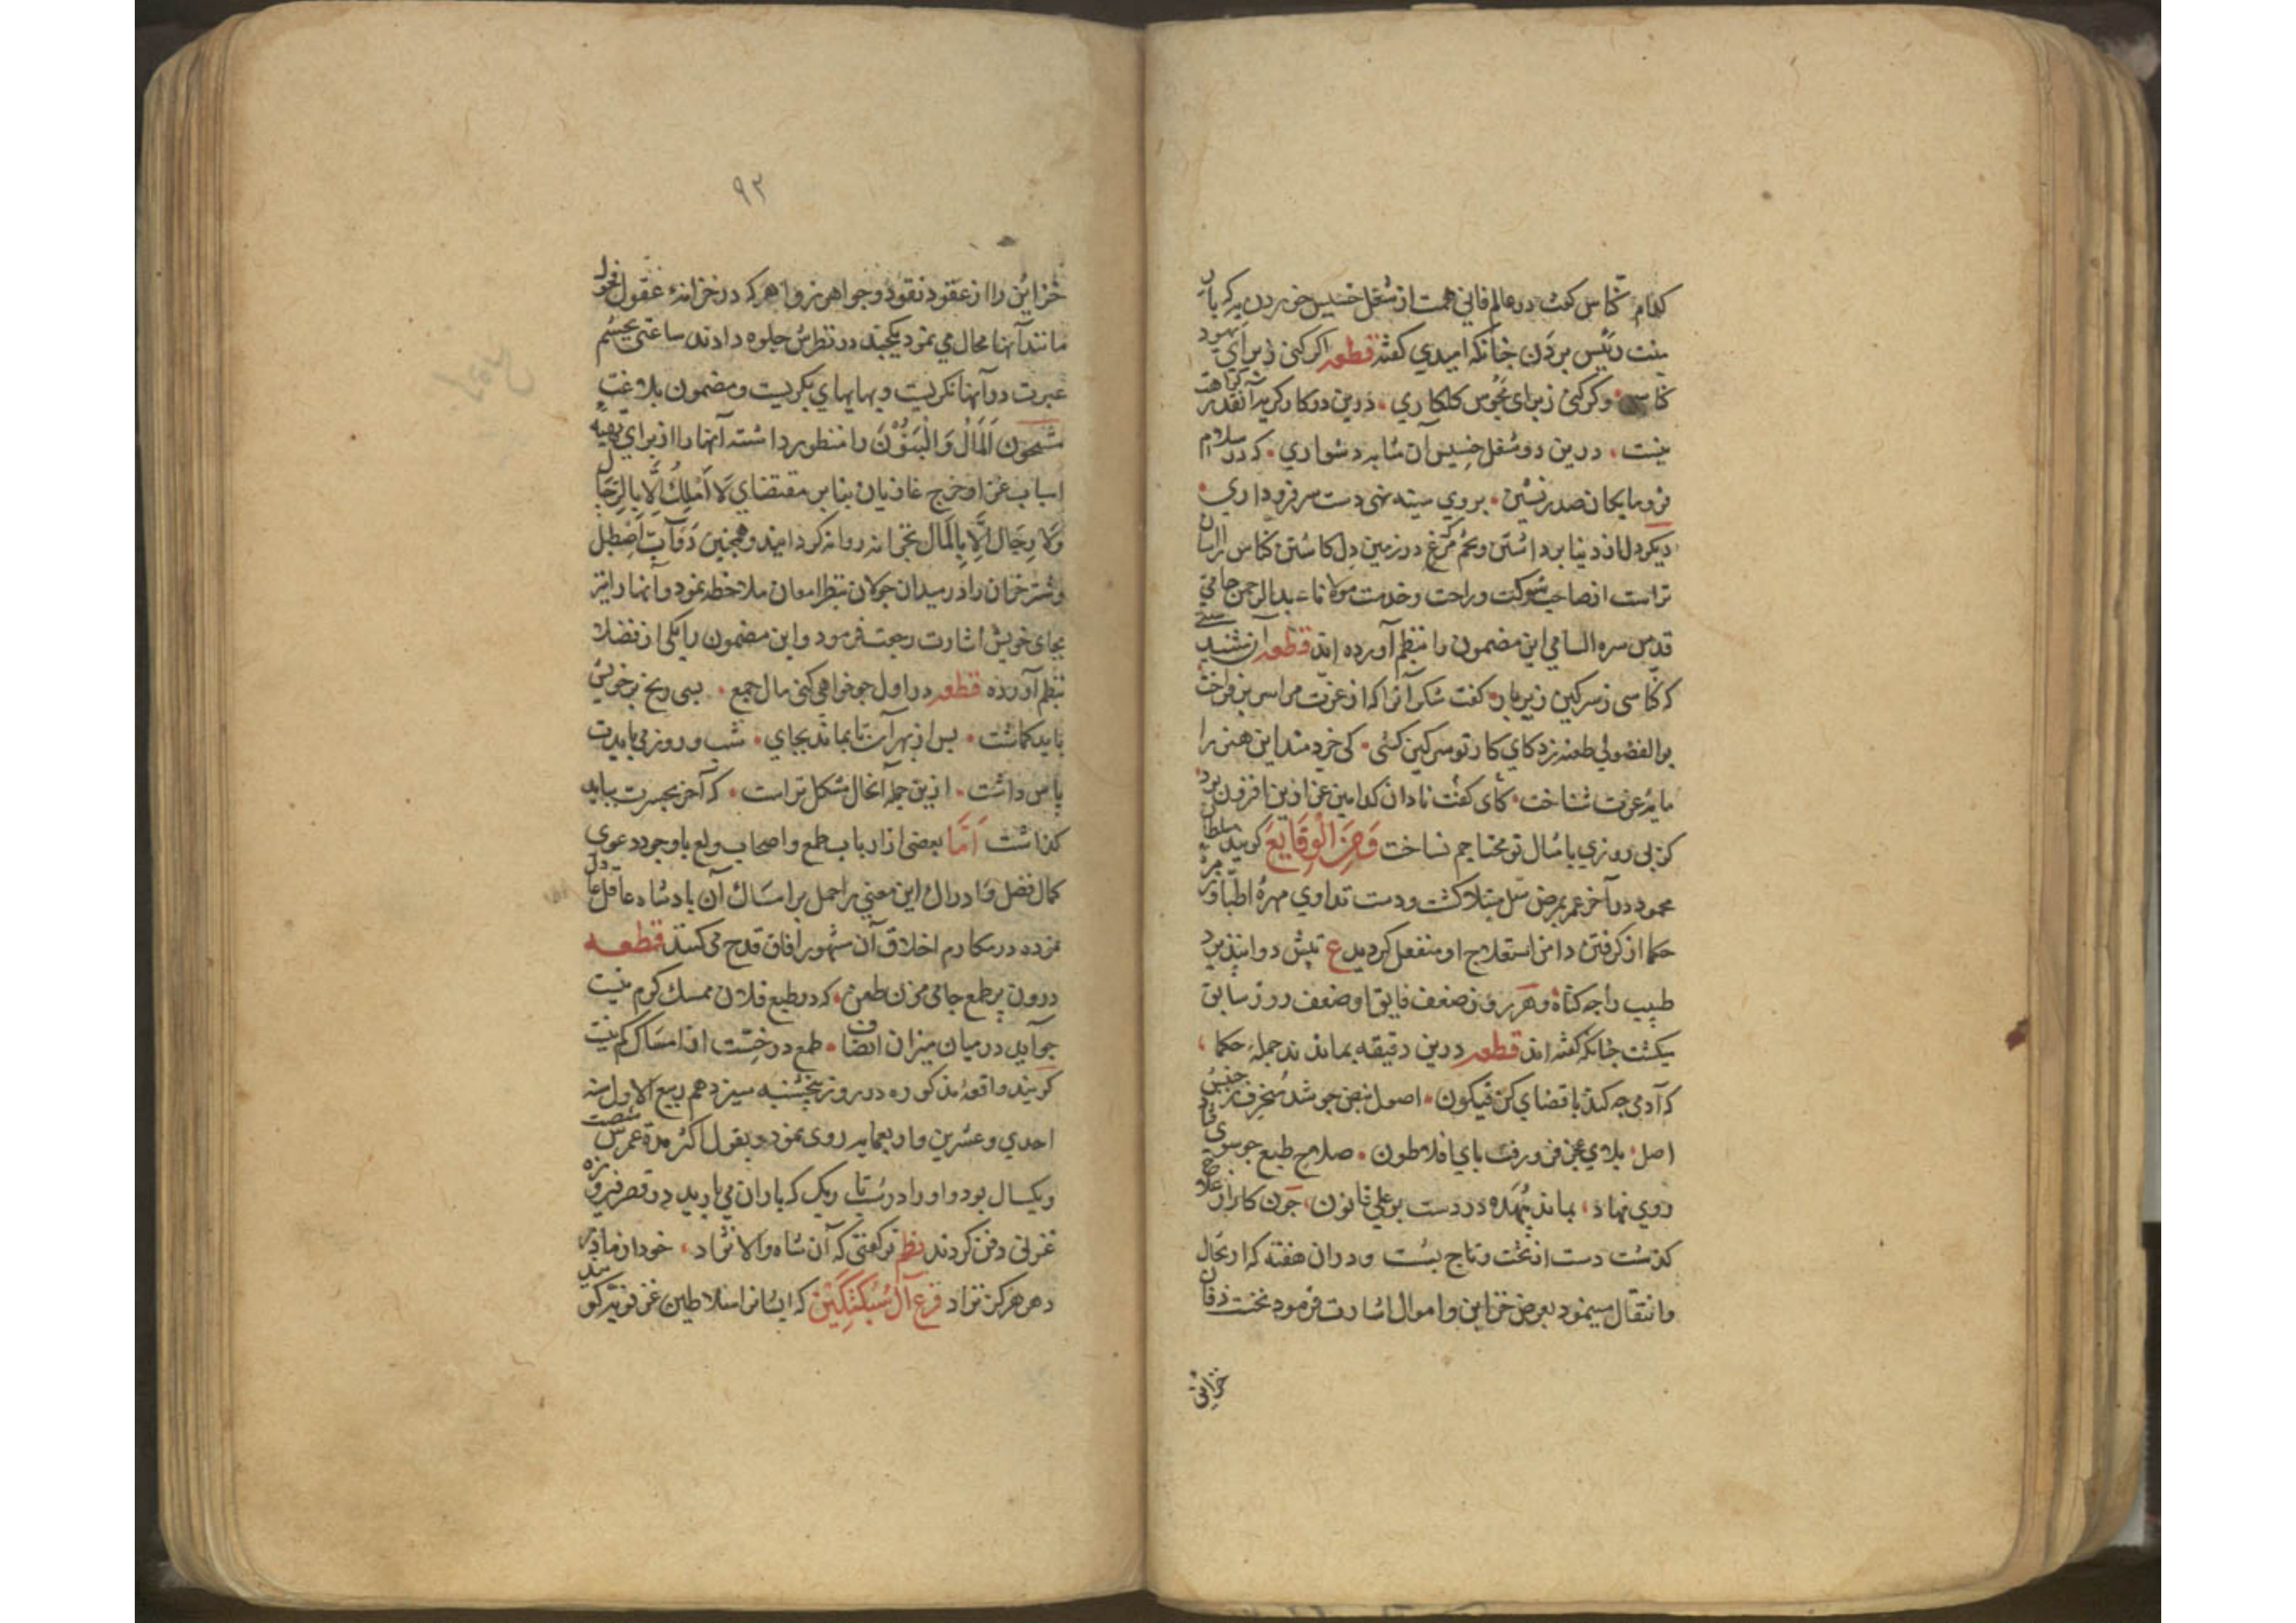 کدام کناس کفت در عالم فانی همت از شغل خسیس خوردن به که بار
منت رئیس بردن چنانکه امیدی کفته قطعه اکر کنی ز برای یهود
کناسی وکر کنی ز برای مجوس کلکاری درین دو کار کریه آنقدر کراهت
نیست درین دو شغل خسیس آن مثابه دشواری که در سلام
فرومایکان صدرنشین بروی سینه نهی دست سر فرود آری
دیکر دل از دنیا برداشتن وتخم در زمین دل کاشتن کناس را آسان
تر است از صاحب شوکت وراحت وخدمت مولانا عبدالرحمن جامی
قدس سره السامی این مضمون را بنظم آورده اند قطعه آن شنیدستی
که کناسی ز سرکین زیر بار کفت شکر آنرا که از عزت مرا سر برفراخت
بوالفضولی طعنه زد کای کار تو سرکین کشی کی خردمند این هنر را
مایه عزت شناخت کای کفت نادان کدامین عز ازین افزون بود
کز پی روزی بامثال تو محتاجم نساخت وَمِنَ الْوَقَایِعِ کویند سلطان
محمود در آخر عمر بمرض سل مبتلا کشت ودست تداوی مهرهٔ اطبا و
حکما از کرفتن دامن استعلاج او منفعل کردید ع تپش دوا نپذیرد
طبیب را چه کناه وهر روز ضعف فایق او ضعف روز سابق
میکشت چنانکه کفته اند قطعه درین دقیقه بماندند جملهٔ حکما
که آدمی چه کند با قضای کن فیکون اصول نبض چو شد منحرف ز جنبش
اصل بلای عجز فرو رفت پای افلاطون صلاح طبع چو سوی فساد
روی نهاد بماند بیهده در دست بوعلی قانون چون کار از علاج
کذشت دست از تخت وتاج بشست ودر ان هفته که ارتحال
وانتقال مینمود بعرض خزاین واموال اشارت فرمود نخست
خزاین
۹۳
خزاین را از عقود نقود وجواهر زواهر که در خزانهٔ عقول فحول
مانند آنها محال می نمود یکیک در نظرش جلوه دادند ساعتی بچشم
عبرت در آنها نکریست وبهایهای بکریست ومضمون بلاغت
مشحون اَلْمَالُ وَالْبَنُوْنَ را منظور داشته آنها را از برای تهیهٔ
اسباب غزا وخرج غازیان بنابر مقتضای لَا اَمْلِكُ اِلَّا بِالرِّجَال
وَلَا رِجَالَ اِلَّا بِالْمَال بخزانه روانه کردانید وهمچنین دوآب اصطبل
وشترخان را در میدان جولان بنظر امعان ملاحظه نمود وآنها را نیز
بجای خویش اشارت رجعت فرمود واین مضمون را یکی از فضلا
بنظم آورده قطعه در اول چو خواهی کنی مال جمع بسی رنج بر خویش
باید کماشت پس از بهر آن تا بماند بجای شب وروز می بایدت
پاس داشت ازین جمله آنحال مشکل تر است که آخر بحسرت بباید
کذاشت اَمَّا بعضی از ارباب طمع واصحاب ولع باوجود دعوی
کمال فضل وادراك این معنی را حمل بر امساك آن بادشاه عاقل عادل
نموده در مکارم اخلاق آن مشهور افاق قدح می کنند قطعه
درون پرطمع جامی مزن طعن که در طبع فلان ممسك کرم نیست
چو آید در میان میزان انصاف طمع در خست از امساك کم نیست
کویند واقعهٔ مذکوره در روز پنجشنبه سیزدهم ربیع الاول سنه
احدی وعشرین واربعمایه روی نمود وبقول اکثر مدة عمرش شصت
ویکسال بود واو را در شبی که باران می بارید در قصر فیروزه
غزنی دفن کردند نظم تو کفتی که آن شاه والانژاد خود از مادر
دهر هرکز نزاد فرع آل سُبُکْتِکِیْن که ایشانرا سلاطین غزنویه کو